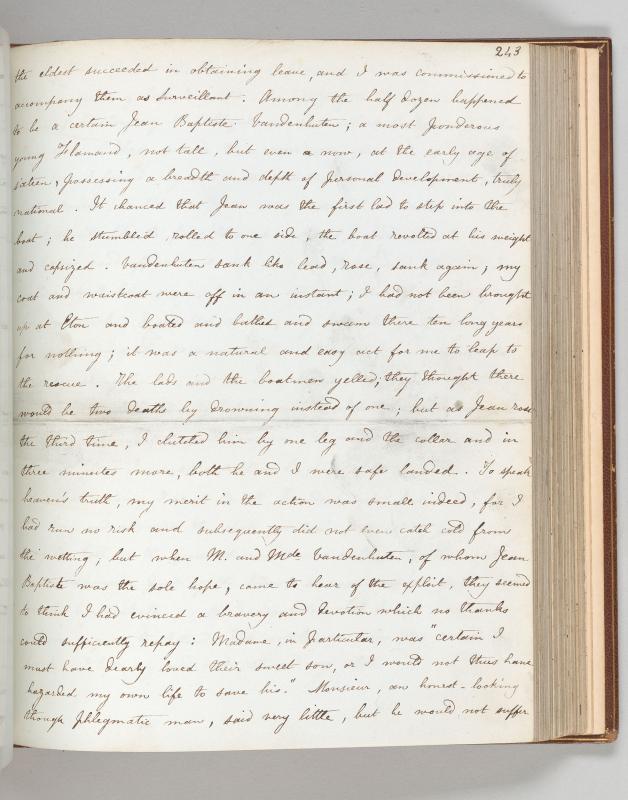 243
the eldest succeeded in obtaining leave, and I was commissioned to
accompany them as surveillant. Among the half dozen happened
to be a certain Jean Baptiste Vandenhuten; a most ponderous
young Flamand, not tall, but even now, at the early age of
sixteen, possessing a breadth and depth of personal development, truly
national. It chanced that Jean was the first lad to step into the
boat; he stumbled, rolled to one side, the boat revolted at his weight
and capsized. Vandenhuten sank like lead, rose, sank again; my
coat and waistcoat were off in an instant; I had not been brought
up at Eton and boated and bathed and swam there ten long years
for nothing; it was a natural and easy act for me to leap to
the rescue. The lads and the boatmen yelled; they thought there
would be two deaths by drowning instead of one; but as Jean rose
the third time, I clutched him by one leg and the collar and in
three minutes more, both he and I were safe landed. To speak
heaven's truth, my merit in the action was small indeed, for I
had run no risk and subsequently did not even catch cold from
the wetting; but when M. and Mde Vandenhuten, of whom Jean
Baptiste was the sole hope, came to hear of the exploit, they seemed
to think I had evinced a bravery and devotion which no thanks
could sufficiently repay: Madame, in particular, was "certain I
must have dearly loved their sweet son, or I would not thus have
hazarded my own life to save his." Monsieur, an honest-looking
though phlegmatic man, said very little, but he would not suffer